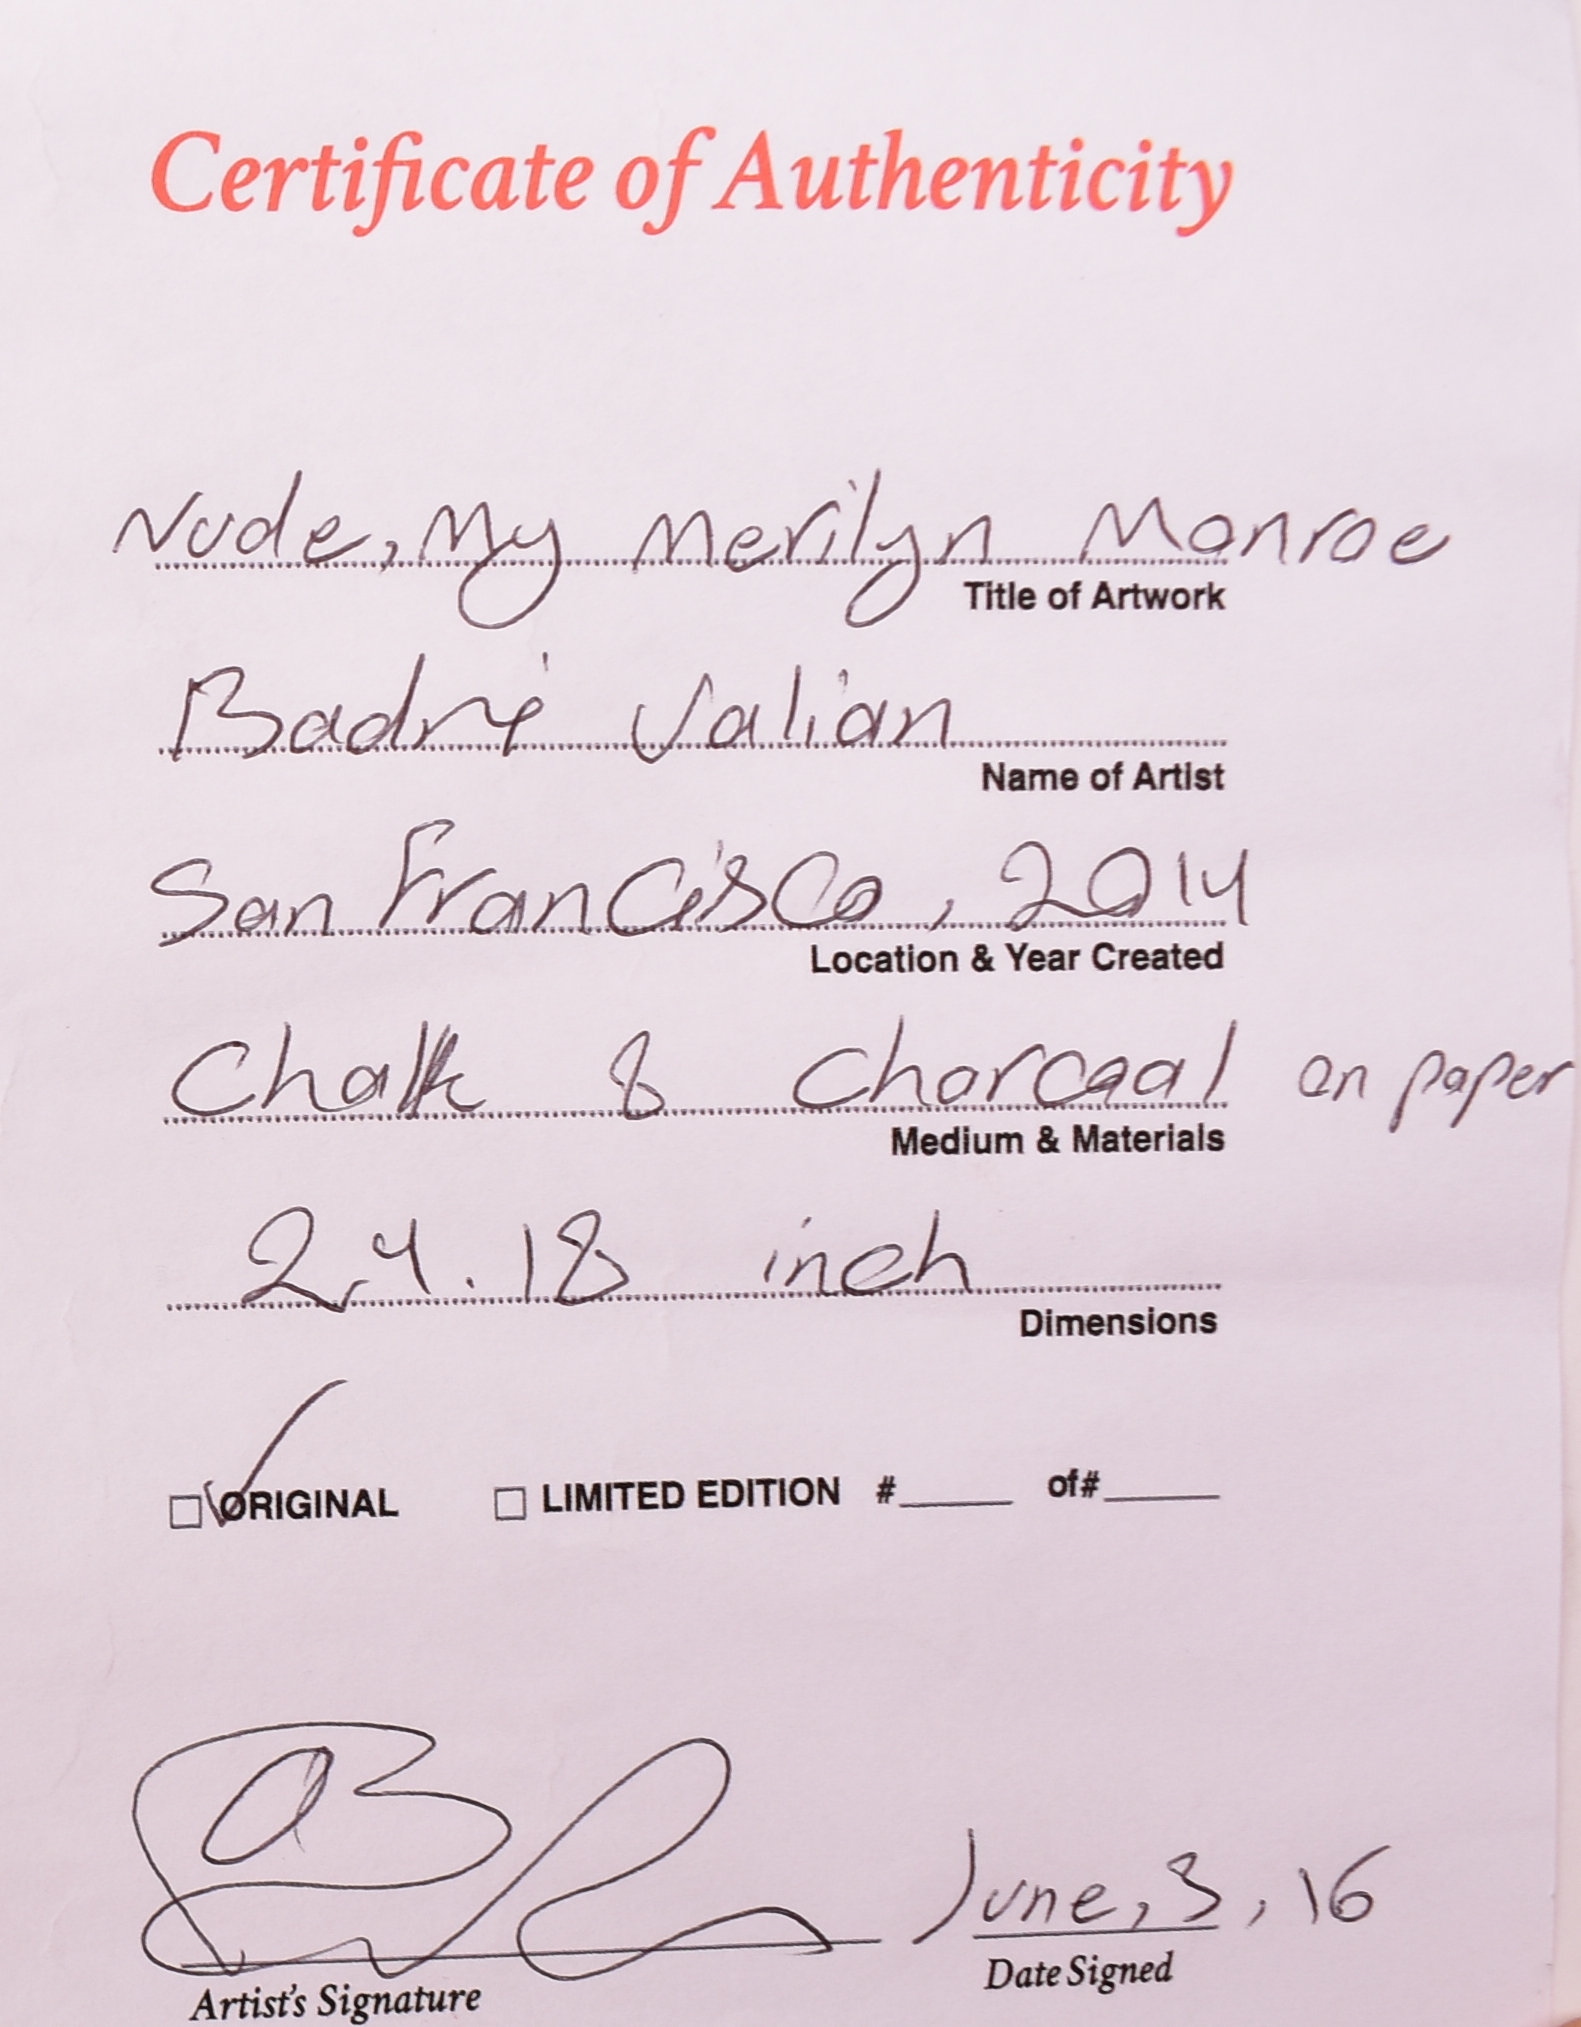 Certificate of Authenticity
Nude, My Merilyn Monroe
Title of Artwork
Badri Valian
Name of Artist
San Francisco, 2014
Location & Year Created
Chalk & Charcoal on paper
Medium & Materials
24.18 inch
Dimensions
ORIGINAL LIMITED EDITION #_____ of#_____
June, 3, 16
Artist's Signature Date Signed